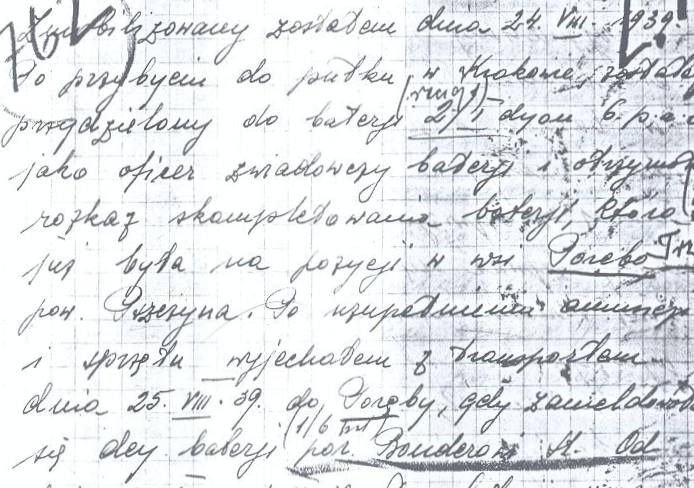 Zmobilizowany zostałem dnia 24. VIII. 1939.
Po przybyciu do pułku w Krakowie, został
przydzielony do baterji 2/I dyon 6. p. a.
jako oficer zwiadowczy baterji i otrzymał
rozkaz skompletowania baterji, która
już była na pozycji w wsi Poręba
pow. Pszczyna. Po uzupełnieniu amunicji
i sprzętu wyjechałem z transportem
dnia 25. VIII. 39. do Poręby, gdy zameldował
(1/6 
się dcy baterji por. Bouderowi St. Od